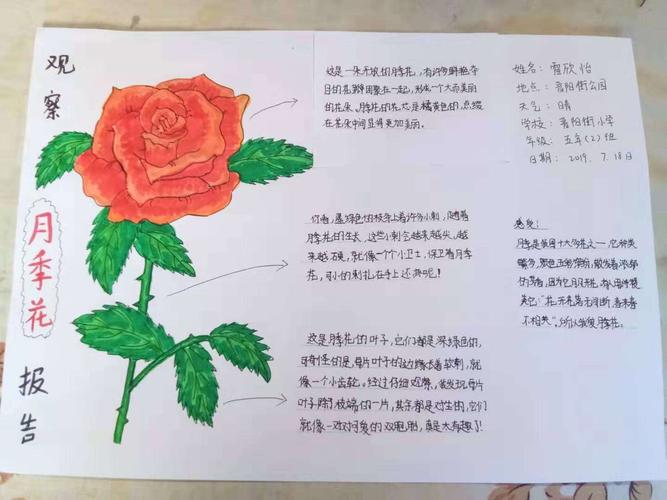 观察
月季花
报告
这是一朵开放的月季花,有许多鲜艳夺
目的花瓣团聚在一起,形成一个大而美丽
的花朵。月季花的花芯是橘黄色的,点缀
在花朵中间显得更加美丽。
你看,墨绿色的枝条上着许多小刺,随着
月季花的生长,这些小刺会越来越尖,越
来越硬,就像一个个小卫士,保卫着月季
花,可小的刺扎在手上还疼呢!
这是月季花的叶子,它们都是深绿色的,
奇怪的是,每片叶子的边缘长着软刺,就
像一个小齿轮。经过仔细观察,我发现每片
叶子除了枝端的一片,其余都是对生的,它们
就像一对对可爱的双胞胎,真是太有趣了!
姓名:雷欣怡
地点:晋阳街公园
天气:晴
学校:晋阳街小学
年级:五年(2)班
日期:2019.7.18日
感受:
月季是我国十大名花之一,它种类
繁多,颜色五彩缤纷,散发着浓郁
的芳香,因为它月月开花,古人
美它:“花开花落无间断,春来春
不相关”。所以我爱月季花。